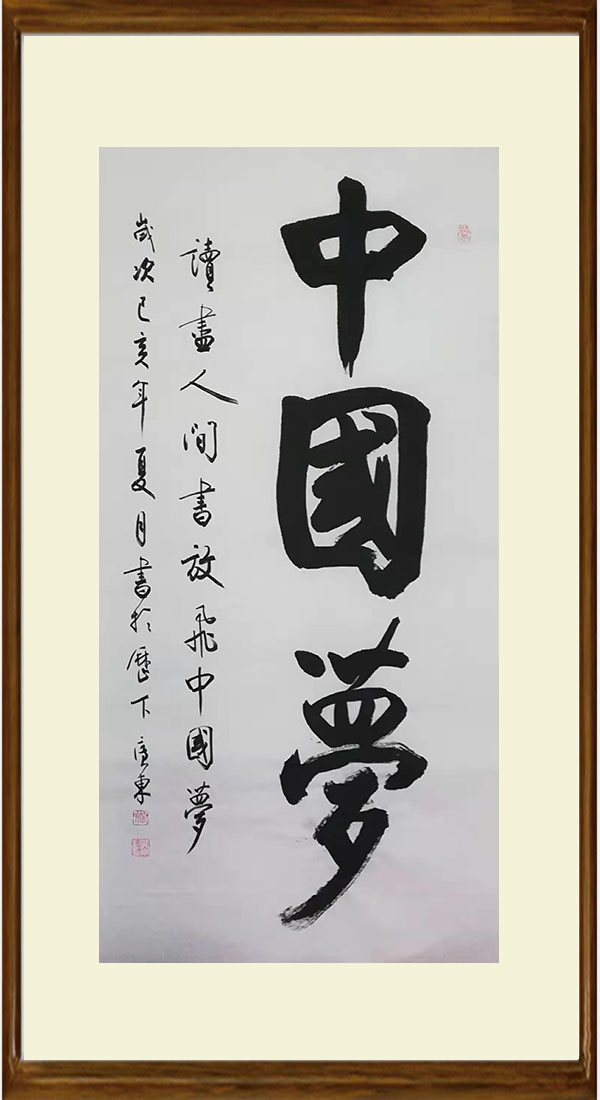 中國夢
讀盡人间書放飛中國夢
歲次己亥年夏月書於歷下廣東